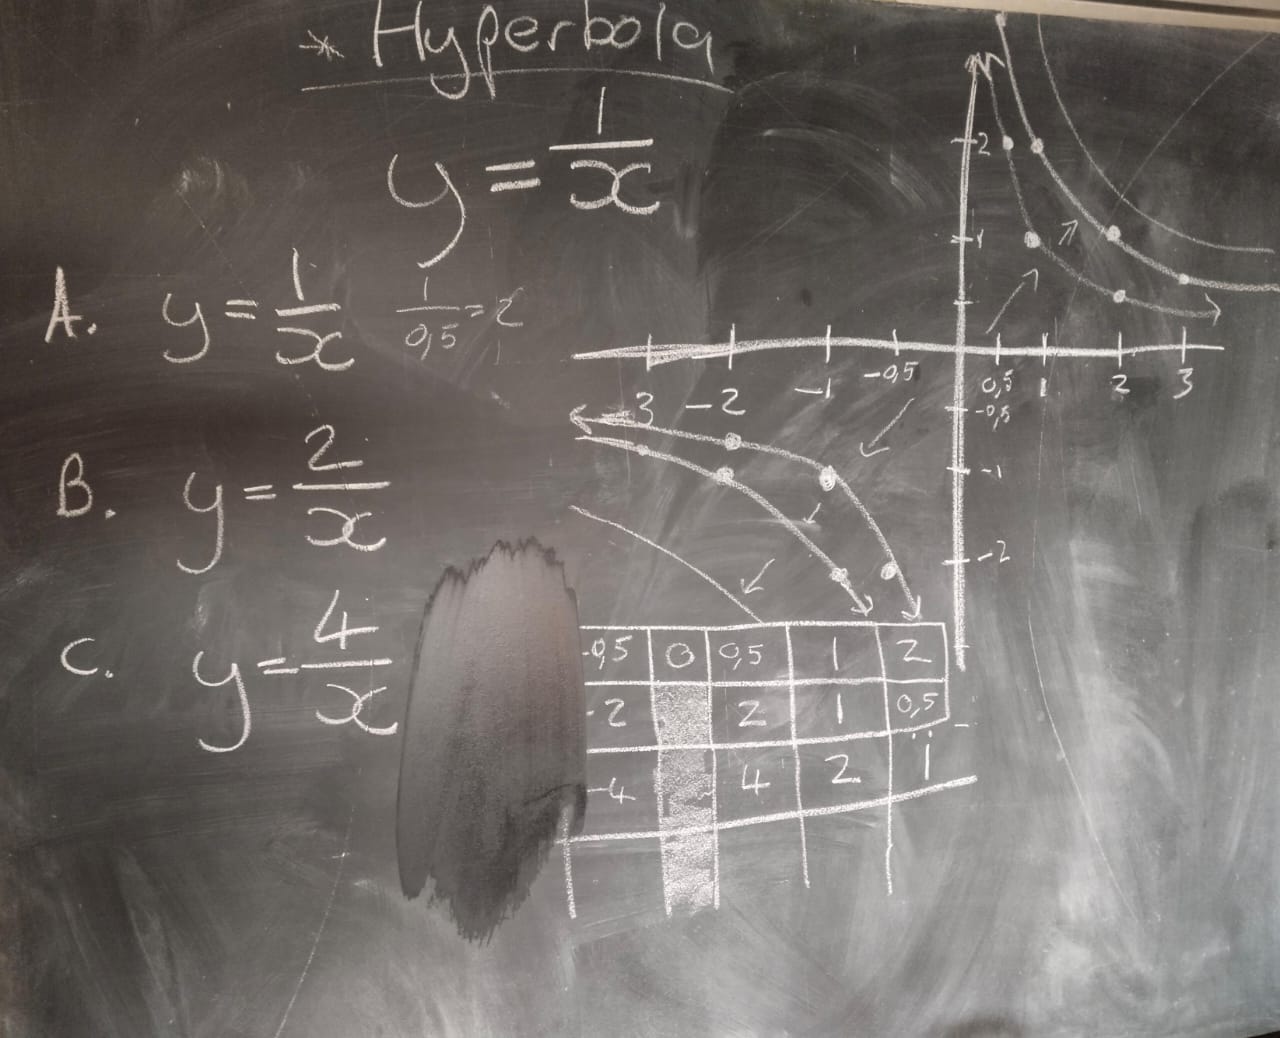 * Hyperbola
y = 1/x
A. y = 1/x 1/0,5 = 2
B. y = 2/x
C. y = 4/x
2
1
-3 -2 -1 -0,5 0,5 1 2 3
-0,5
-1
-2
-0,5 0 0,5 1 2
-2 2 1 0,5
-4 4 2 1